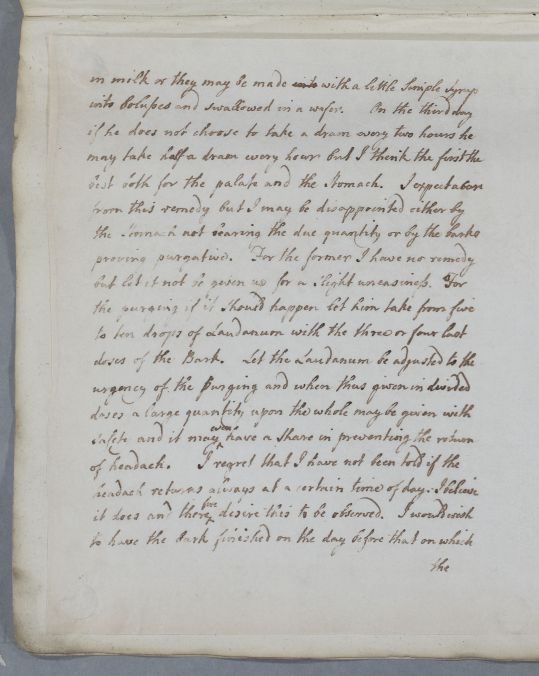 in milk or they may be made into with a little Simple Syrup
into bolusses and swallowed in a wafer. On the third day
if he does not choose to take a dram every two hours he
may take half a dram every hour but I think the first the
best both for the palate and the stomach. I expect a cure
from this remedy but I may be disappointed either by
the stomach not bearing the due quantity or by the bark
proving purgative. For the former I have no remedy
but let it not be given up for a slight uneasiness. For
the purging if it should happen let him take from five
to ten drops of Laudanum with the three or four last
doses of the Bark. Let the Laudanum be adjusted to the
urgency of the Purging and when thus given in divided
doses a large quantity upon the whole may be given with
safete and it may even have a share in preventing the return
of headach. I regret that I have not been told if the
headach returns always at a certain time of day. I believe
it does and therefore desire this to be observed. I would wish
to have the Bark finished on the day before that on which
the